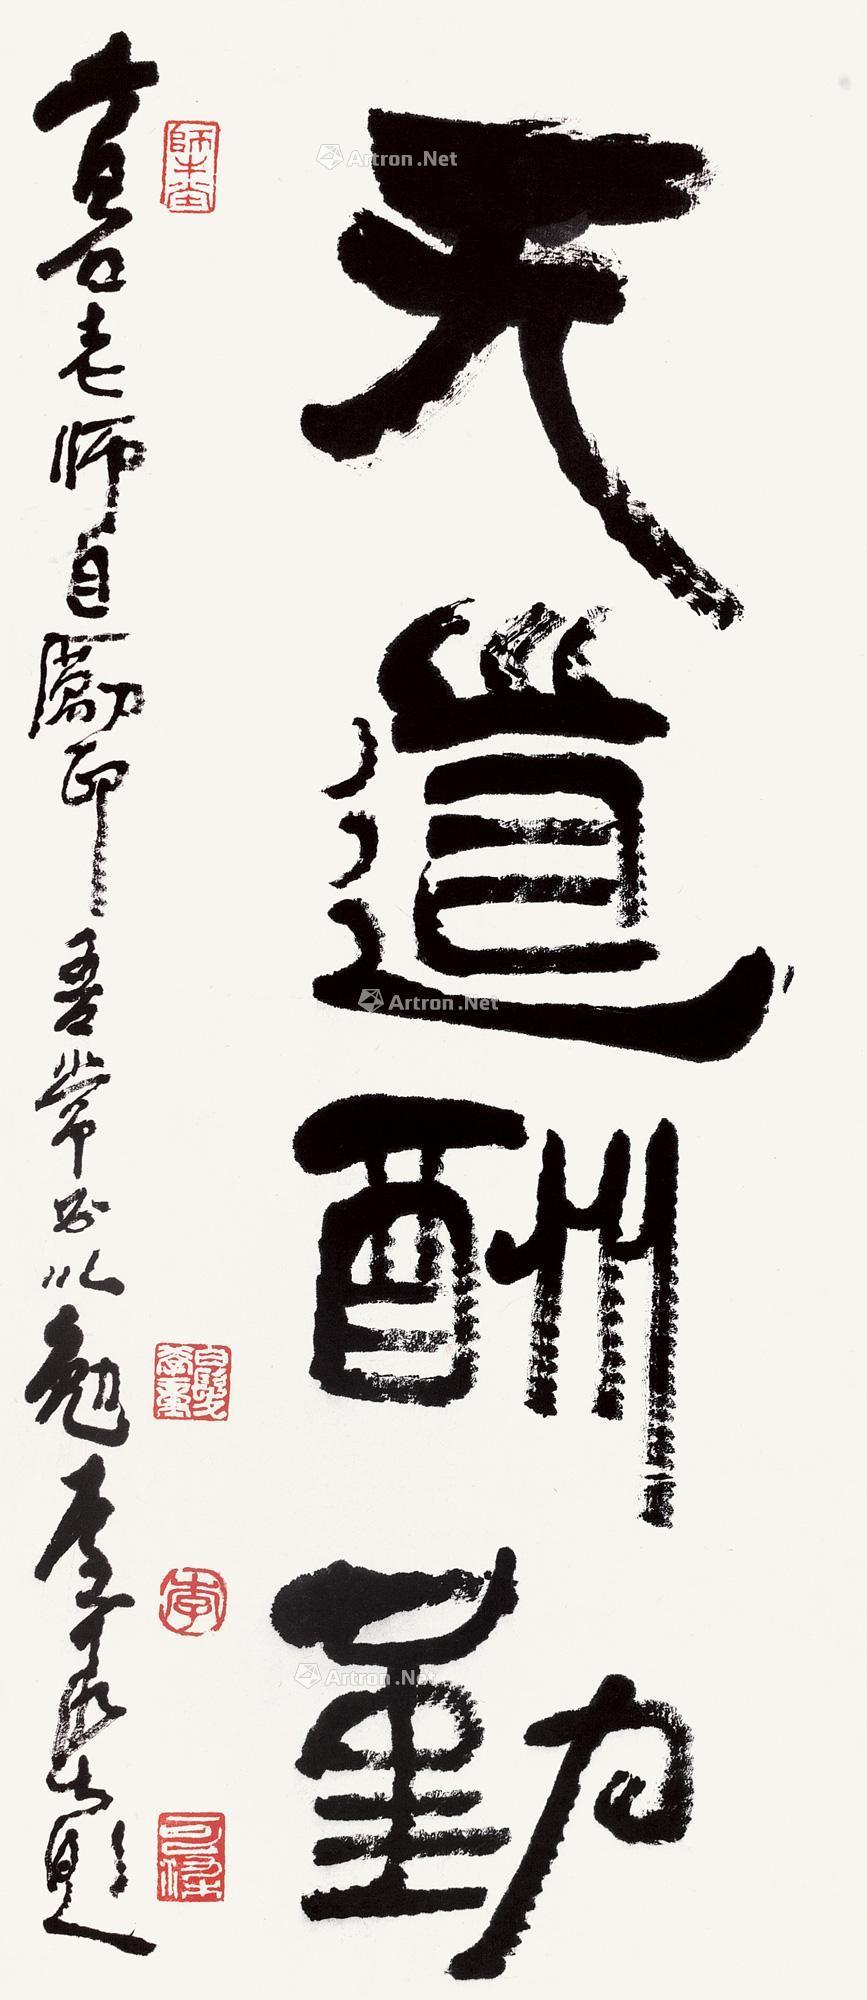 天道酬勤
昔白石老師自勵印吾常書以勉李可染題
師牛堂
白髮學童
李
可染
Artron.Net
Artron.Net
Artron.Net